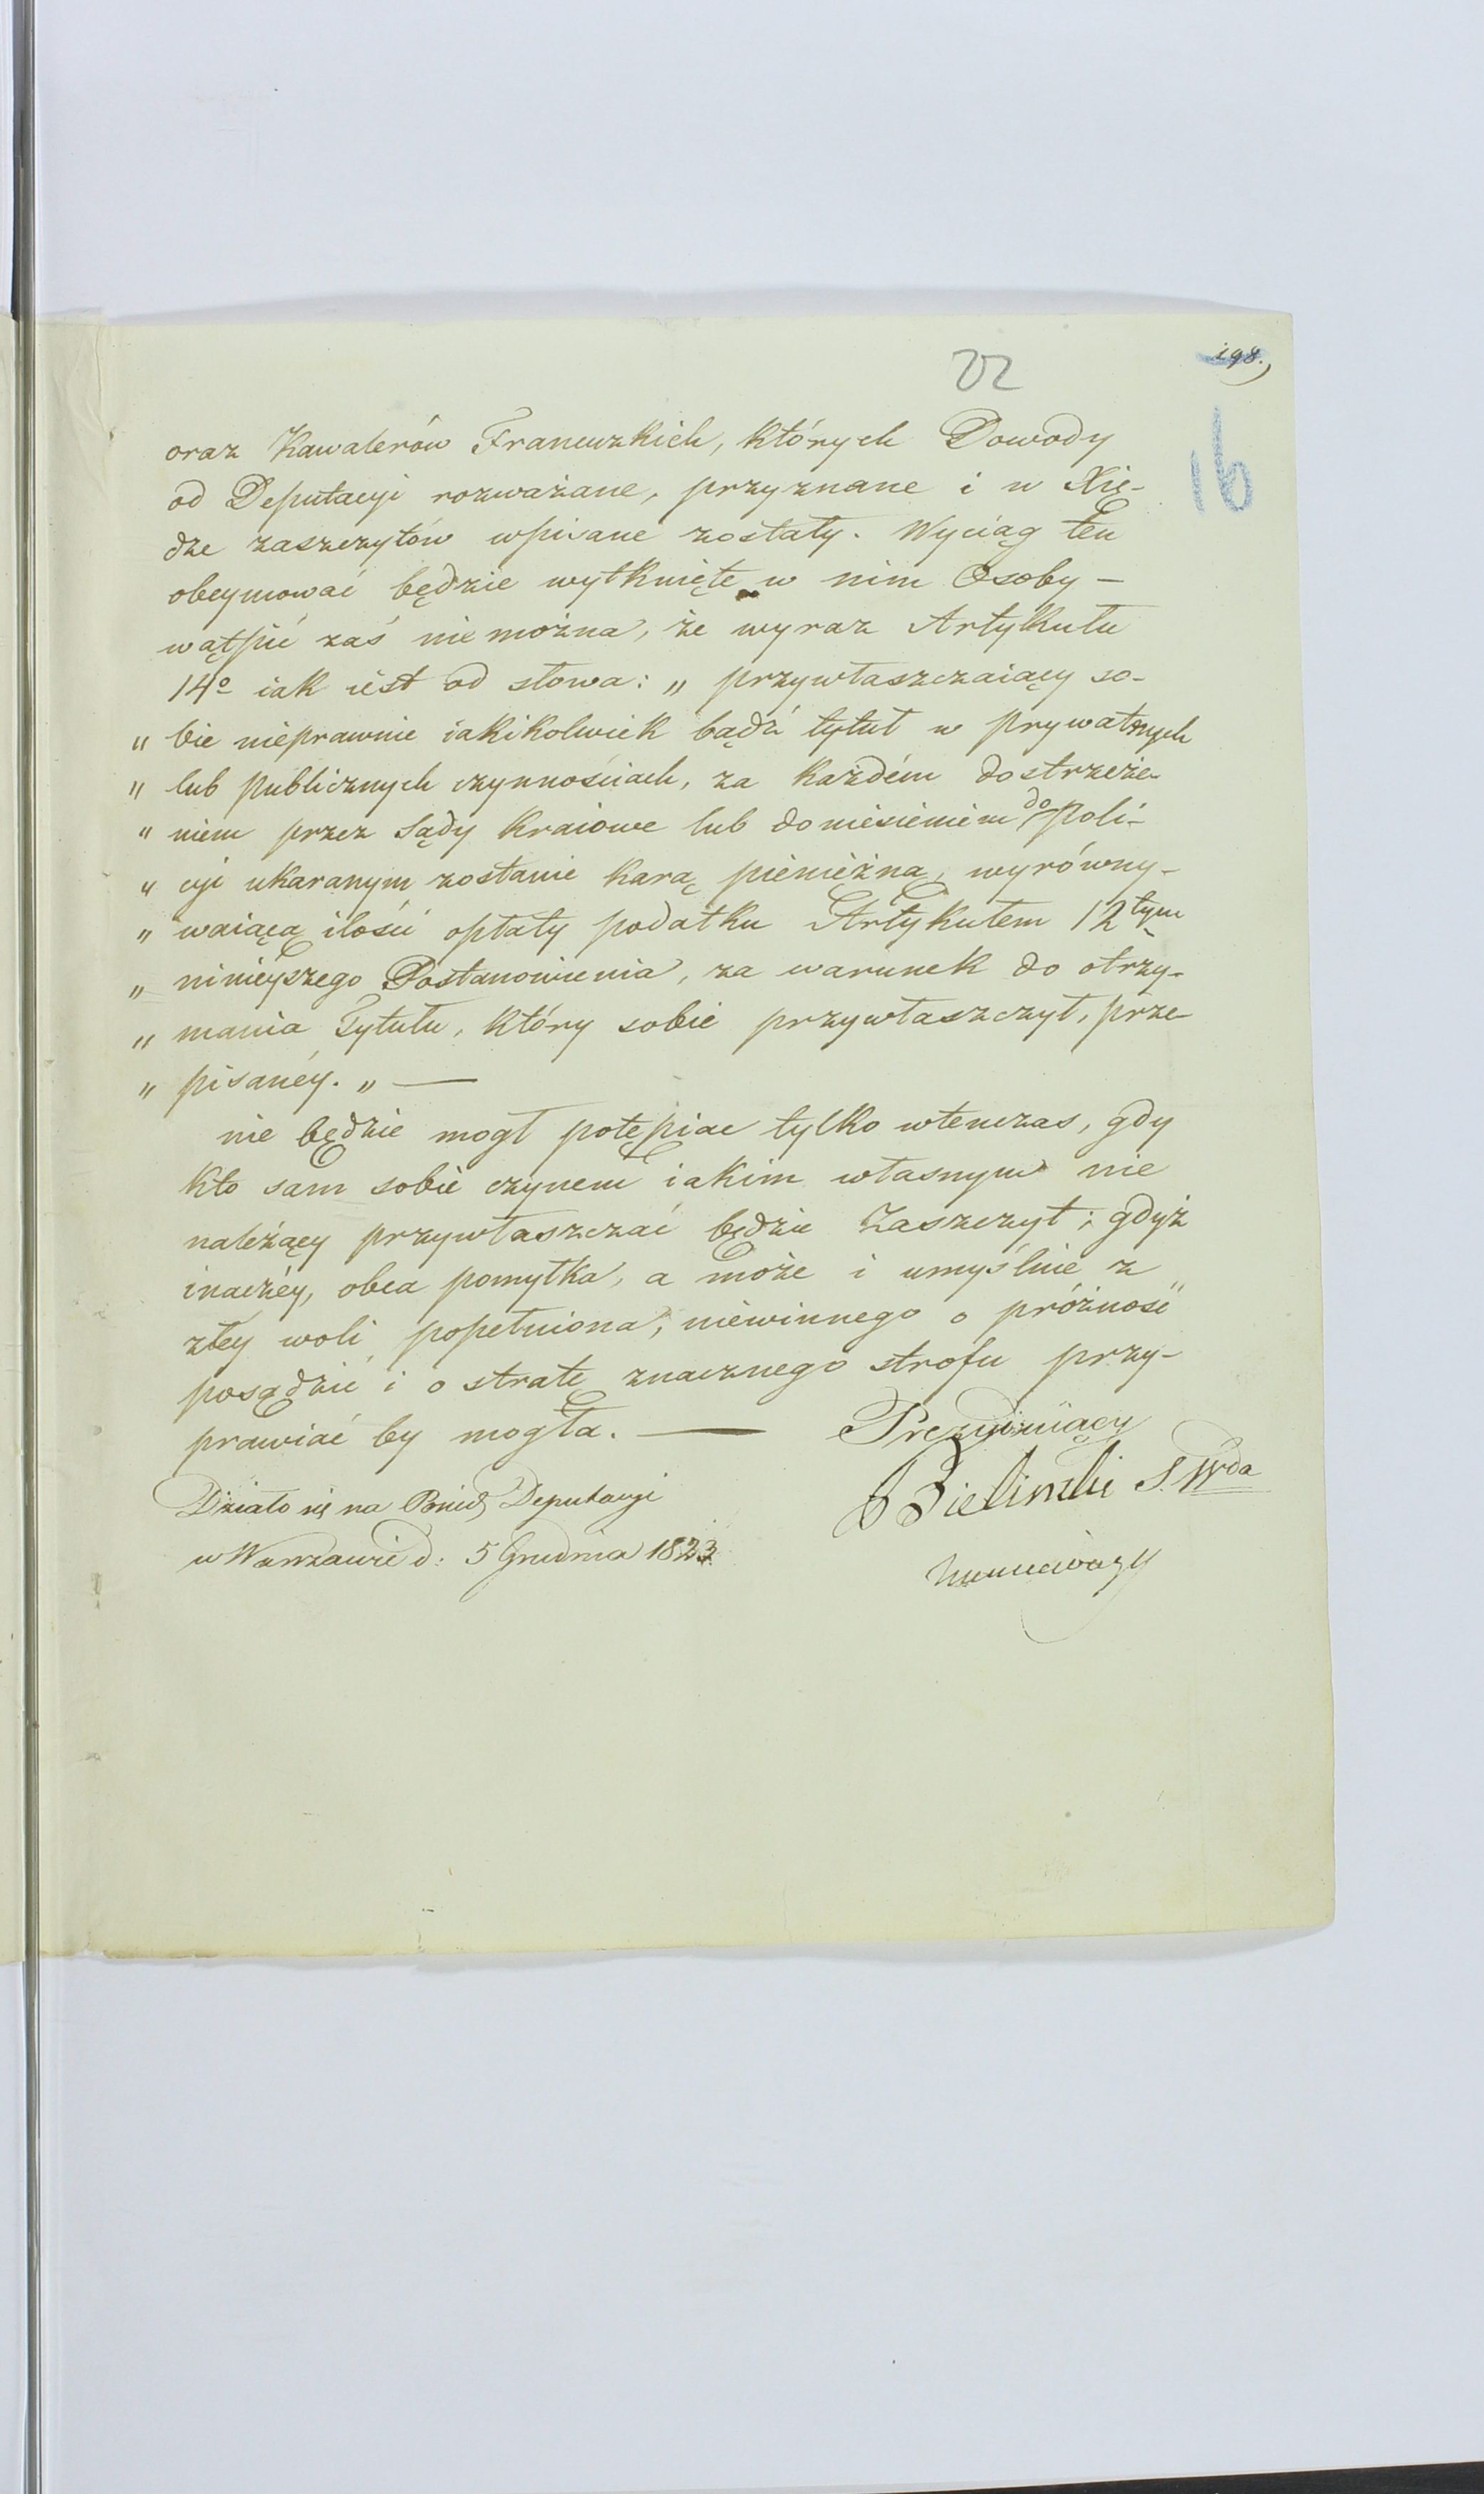 22
198.
16
oraz Kawalerów Francuzkich, których Dowody
od Deputacyi rozważane, przyznane i w Xię-
dze zaszczytów wpisane zostały. Wyciąg ten
obeymować będzie wytknięte w nim Osoby —
wątpić zaś nie można, że wyraz Artykułu
14º iak iest od słowa: „ przywłaszczaiący so-
„ bie nieprawnie iakikolwiek bądź tytuł w prywatnych
„ lub publicznych czynnościach, za każdém dostrzeże-
„ niem przez Sądy kraiowe lub doniesieniem do Poli-
„ cyi ukaranym zostanie karą pieniężną, wyrówny-
„ waiącą ilości opłaty podatku Artykułem 12tym
„ ninieyszego Postanowienia, za warunek do otrzy-
„ mania Tytułu, który sobie przywłaszczył, prze-
„ pisanéy. „ —
nie będzie mogł potępiac tylko wtenczas, gdy
kto sam sobie czynem iakim własnym nie
należący przywłaszczać będzie Zaszczyt; gdyż
inaczéy, obca pomyłka, a może i umyślnie z
złey woli popełniona, niewinnego o próżność
posądzić i o stratę znacznego strofu przy-
prawiać by mogła. —
Prezyduiący
Bielinski S. Wda
Działo się na Posied. Deputacyi
w Warszawie d: 5 Grudnia 1823.